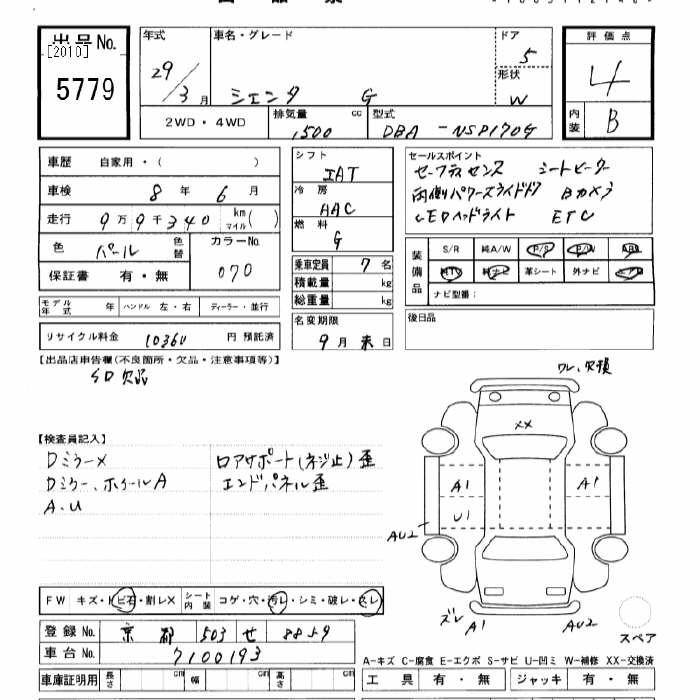 出品No.
[2010]
5779
年式 車名・グレード ドア 5
29/3月 シエンタ G 形状 W
2WD・4WD 排気量 1500 cc 型式 DBA-NSP170G
評価点
4
内装 B
車歴 自家用・( )
車検 8年 6月
走行 9万9千340 km マイル( )
色 パール 色替 カラーNo. 070
保証書 有・無
モデル年式 年 ハンドル 左・右 ディーラー・並行
リサイクル料金 10360 円 預託済
シフト
IAT
冷房
AAC
燃料
G
乗車定員 7名
積載量 kg
総重量 kg
名変期限
9月末日
セールスポイント
セーフティセンス シートヒーター
両側パワースライドドア Bカメラ
LEDヘッドライト ETC
装備品 S/R 純A/W P/S P/W ABS
純ナビ 革シート 外ナビ エアB
ナビ型番:
後日品
【出品店車告欄(不良箇所・欠品・注意事項等)】
SD欠品
ワレ、欠損
【検査員記入】
Dミラーメ ロアサポート(ネジ止)歪
Dミラー、ホイールA エンドパネル歪
A.U
XX
A1 A1
U1
AU2
ズレ A1 AU2
スペア
FW キズ・ト ビ石・割レX シート内装 コゲ・穴・汚レ・シミ・破レ・スレ
登録No. 京都 503 せ 8859
車台No. 7100193
車庫証明用 長さ cm 幅 cm 高さ cm
A-キズ C-腐食 E-エクボ S-サビ U-凹ミ W-補修 XX-交換済
工具 有・無 ジャッキ 有・無